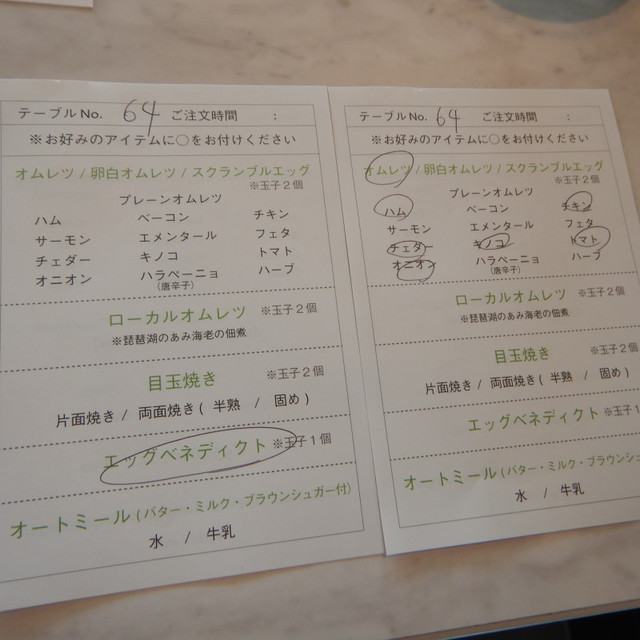 テーブルNo. 64 ご注文時間 :
※お好みのアイテムに〇をお付けください
オムレツ / 卵白オムレツ / スクランブルエッグ
※玉子2個
プレーンオムレツ
ハム ベーコン チキン
サーモン エメンタール フェタ
チェダー キノコ トマト
オニオン ハラペーニョ ハーブ
(唐辛子)
ローカルオムレツ ※玉子2個
※琵琶湖のあみ海老の佃煮
目玉焼き ※玉子2個
片面焼き / 両面焼き ( 半熟 / 固め )
エッグベネディクト ※玉子1個
オートミール (バター・ミルク・ブラウンシュガー付)
水 / 牛乳
テーブルNo. 64 ご注文時間 :
※お好みのアイテムに〇をお付けください
オムレツ / 卵白オムレツ / スクランブルエッグ
※玉子2個
プレーンオムレツ
ハム ベーコン チキン
サーモン エメンタール フェタ
チェダー キノコ トマト
オニオン ハラペーニョ ハーブ
(唐辛子)
ローカルオムレツ ※玉子2個
※琵琶湖のあみ海老の佃煮
目玉焼き ※玉子2個
片面焼き / 両面焼き ( 半熟 / 固め )
エッグベネディクト ※玉子1
オートミール (バター・ミルク・ブラウンシュ
水 / 牛乳